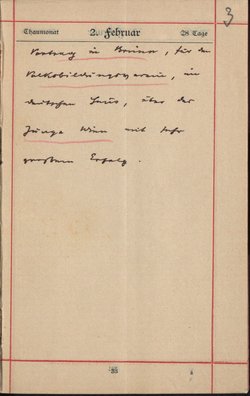 3
Thaumonat 2. Februar 28 Tage
Vortrag in Brünn, für den
Volksbildungsverein, im
deutschen Haus, über das
Junge Wien mit sehr
großem Erfolg.
33